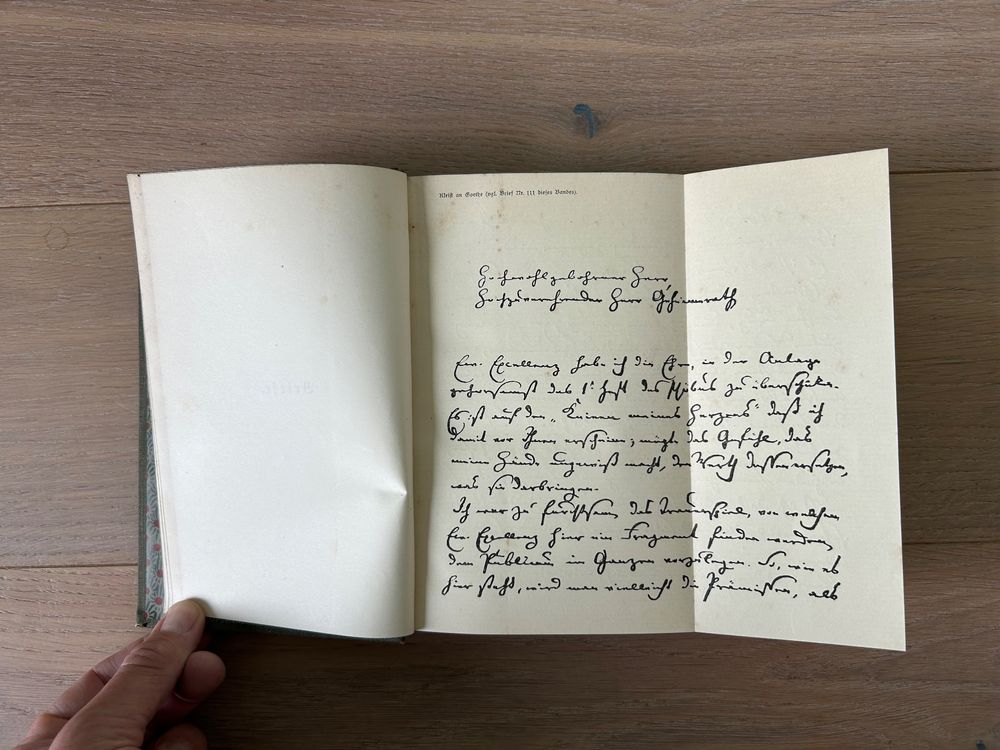 Kleist an Goethe (vgl. Brief Nr. 111 dieses Bandes).
Hochwohlgebohrner Herr,
Hochzuverehrender Herr Geheimerath
Ew. Excellenz habe ich die Ehre, in der Anlage
gehorsamst das 1t Heft des Phöbus zu überschicken.
Es ist auf den „Knieen meines Herzens" daß ich
damit vor Ihnen erscheine; mögte das Gefühl, das
meine Hände ungewiß macht, den Werth dessen ersetzen,
was sie darbringen.
Ich war zu furchtsam, das Trauerspiel, von welchem
Ew. Excellenz hier ein Fragment finden werden,
dem Publicum im Ganzen vorzulegen. So, wie es
hier steht, wird man vielleicht die Prämissen, als